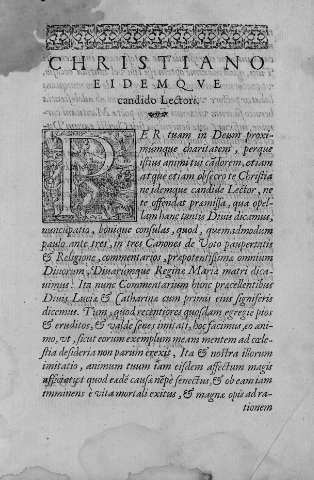 CHRISTIANO
EIDEMQVE
candido Lectori.
PER tuam in Deum proxi-
mumque charitatem, perque
istius animi tui calorem, etiam
atque etiam obsecro te Christia
ne idemque candide Lector, ne
te offendat præmissa, qua opel-
lam hanc tantis Diuis dicamus,
nuncupatio, bonique consulas, quod, quemadmodum
paulo ante tres, in tres Canones de Voto paupertatis
& Religione, commentarios, præpotentissimæ omnium
Diuorum, Diuarumque Reginæ Mariæ matri dica-
uimus: Ita nunc Commentarium hunc præcellentibus
Diuis Lucia & Catharina eum primis eius signiferis
dicemus. Tum, quod recentiores quosdam egregie pios
& eruditos, & valde senes imitati, hoc facimus, eo ani-
mo, vt, sicut eorum exemplum meam mentem ad cæle-
stia desideria non parum erexit, Ita & nostra illorum
imitatio, animum tuum tam eisdem affectum magis
afficiat, et quod eadē causa nēpè senectus, & ob eam tam
imminens è vita mortali exitus, & magnæ opis ad ra-
tionem